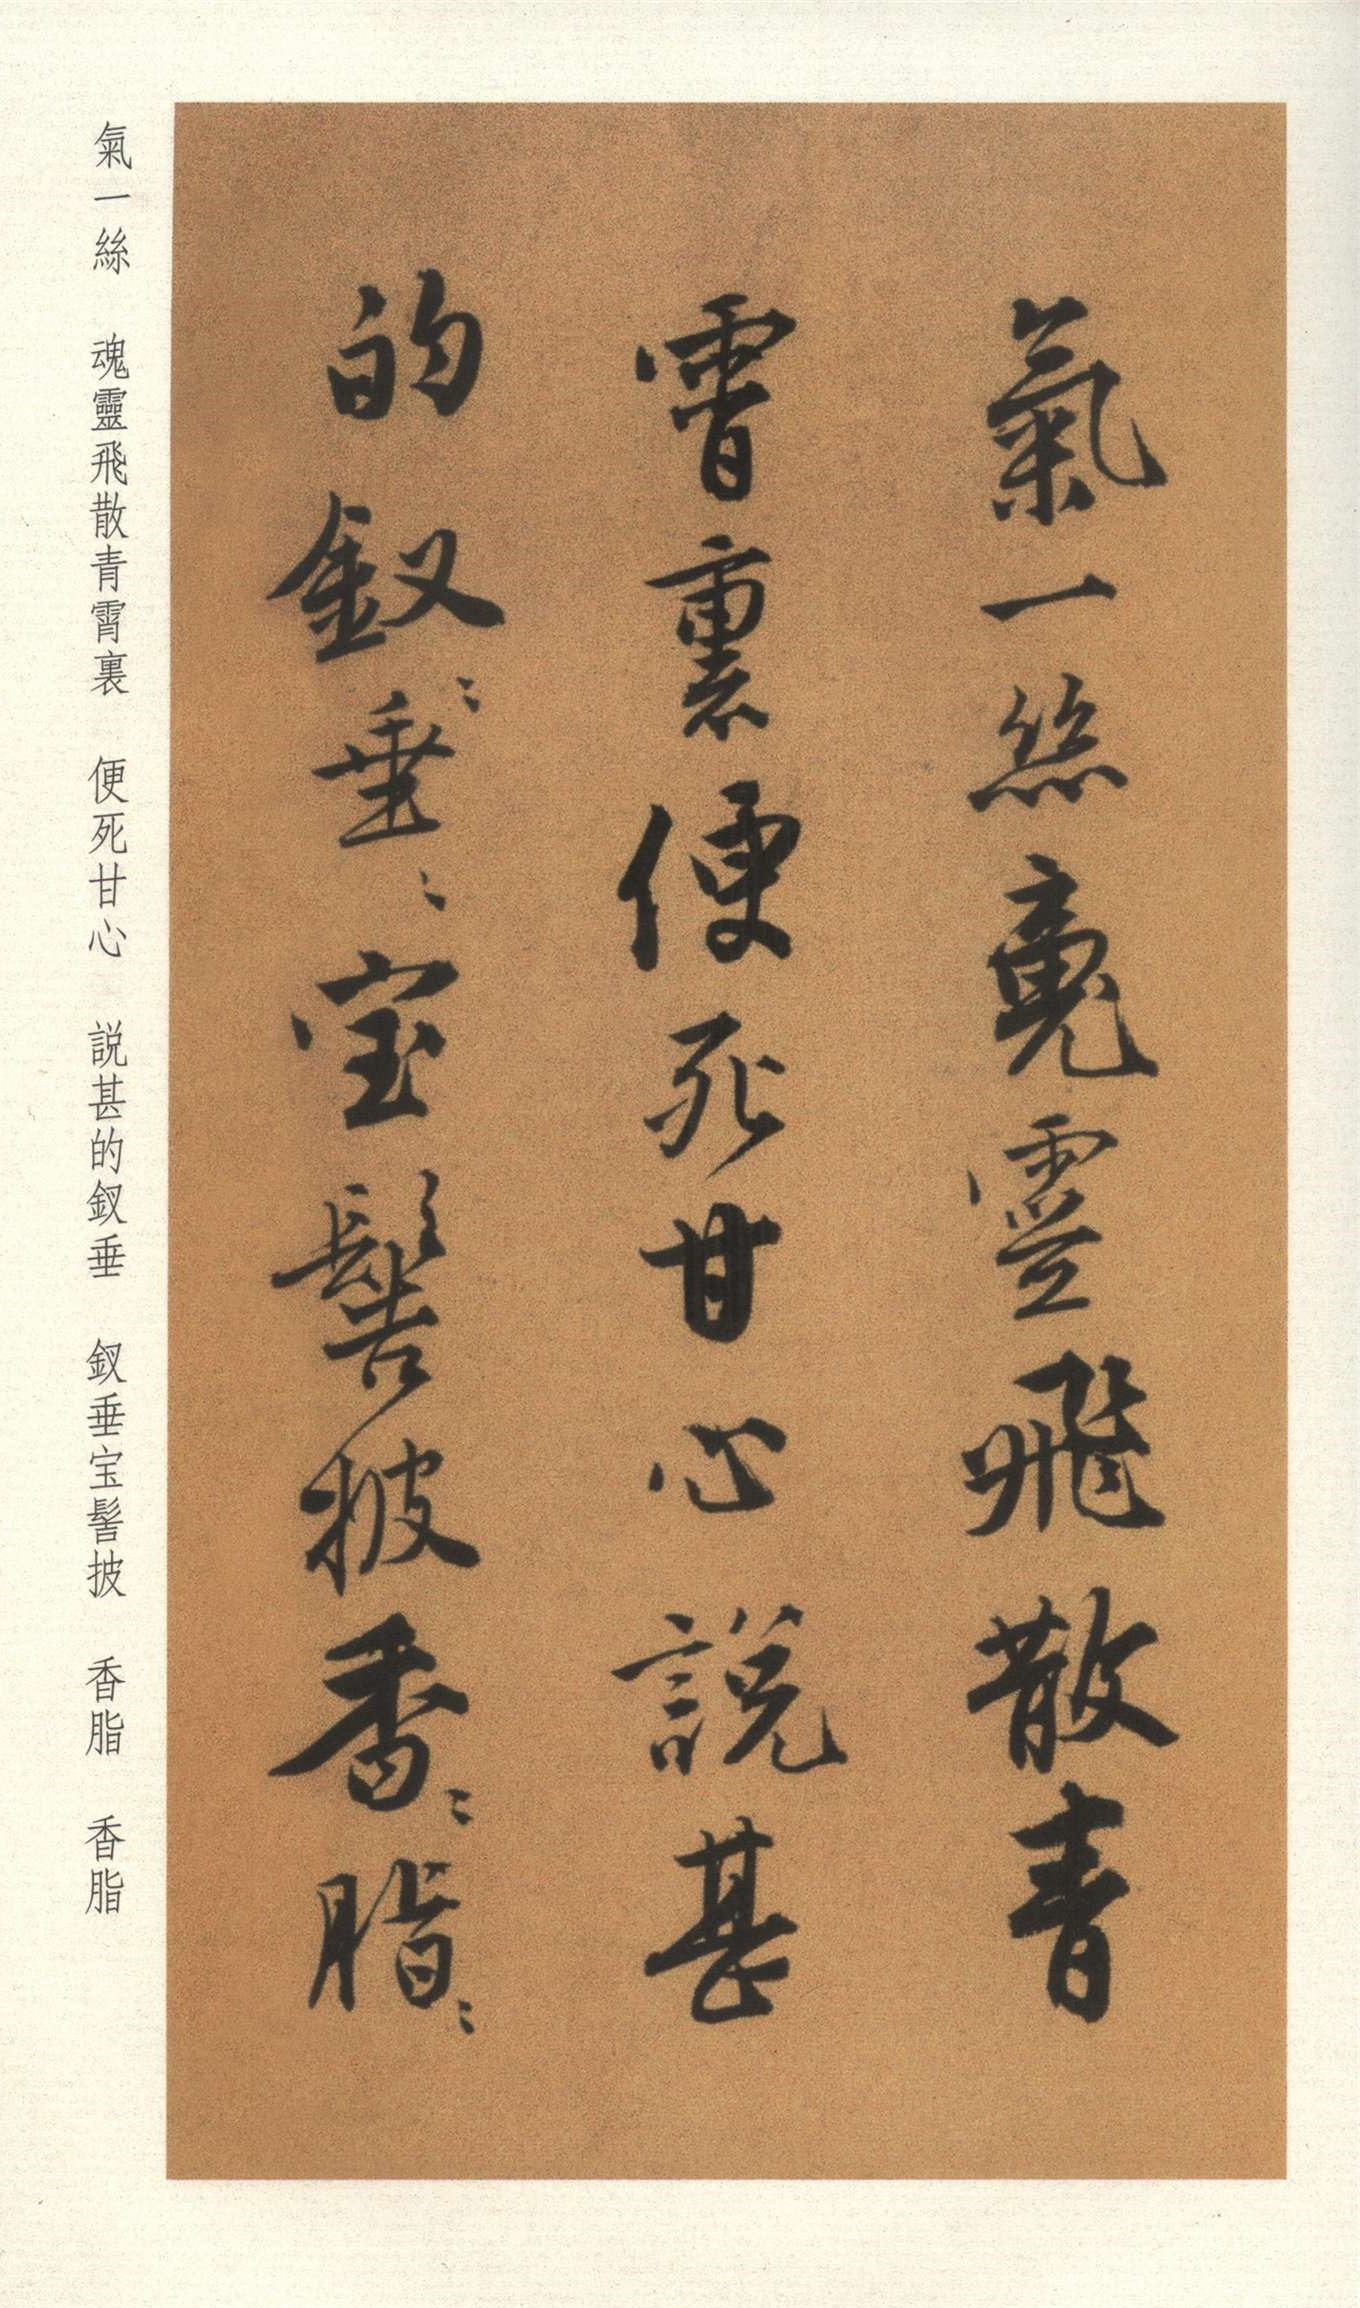 氣一絲魂靈飛散青
霄裏便死甘心說甚
的釵〻垂〻宝髻披香〻脂〻
氣一絲 魂靈飛散青霄裏 便死甘心 説甚的釵垂 釵垂宝髻披 香脂 香脂